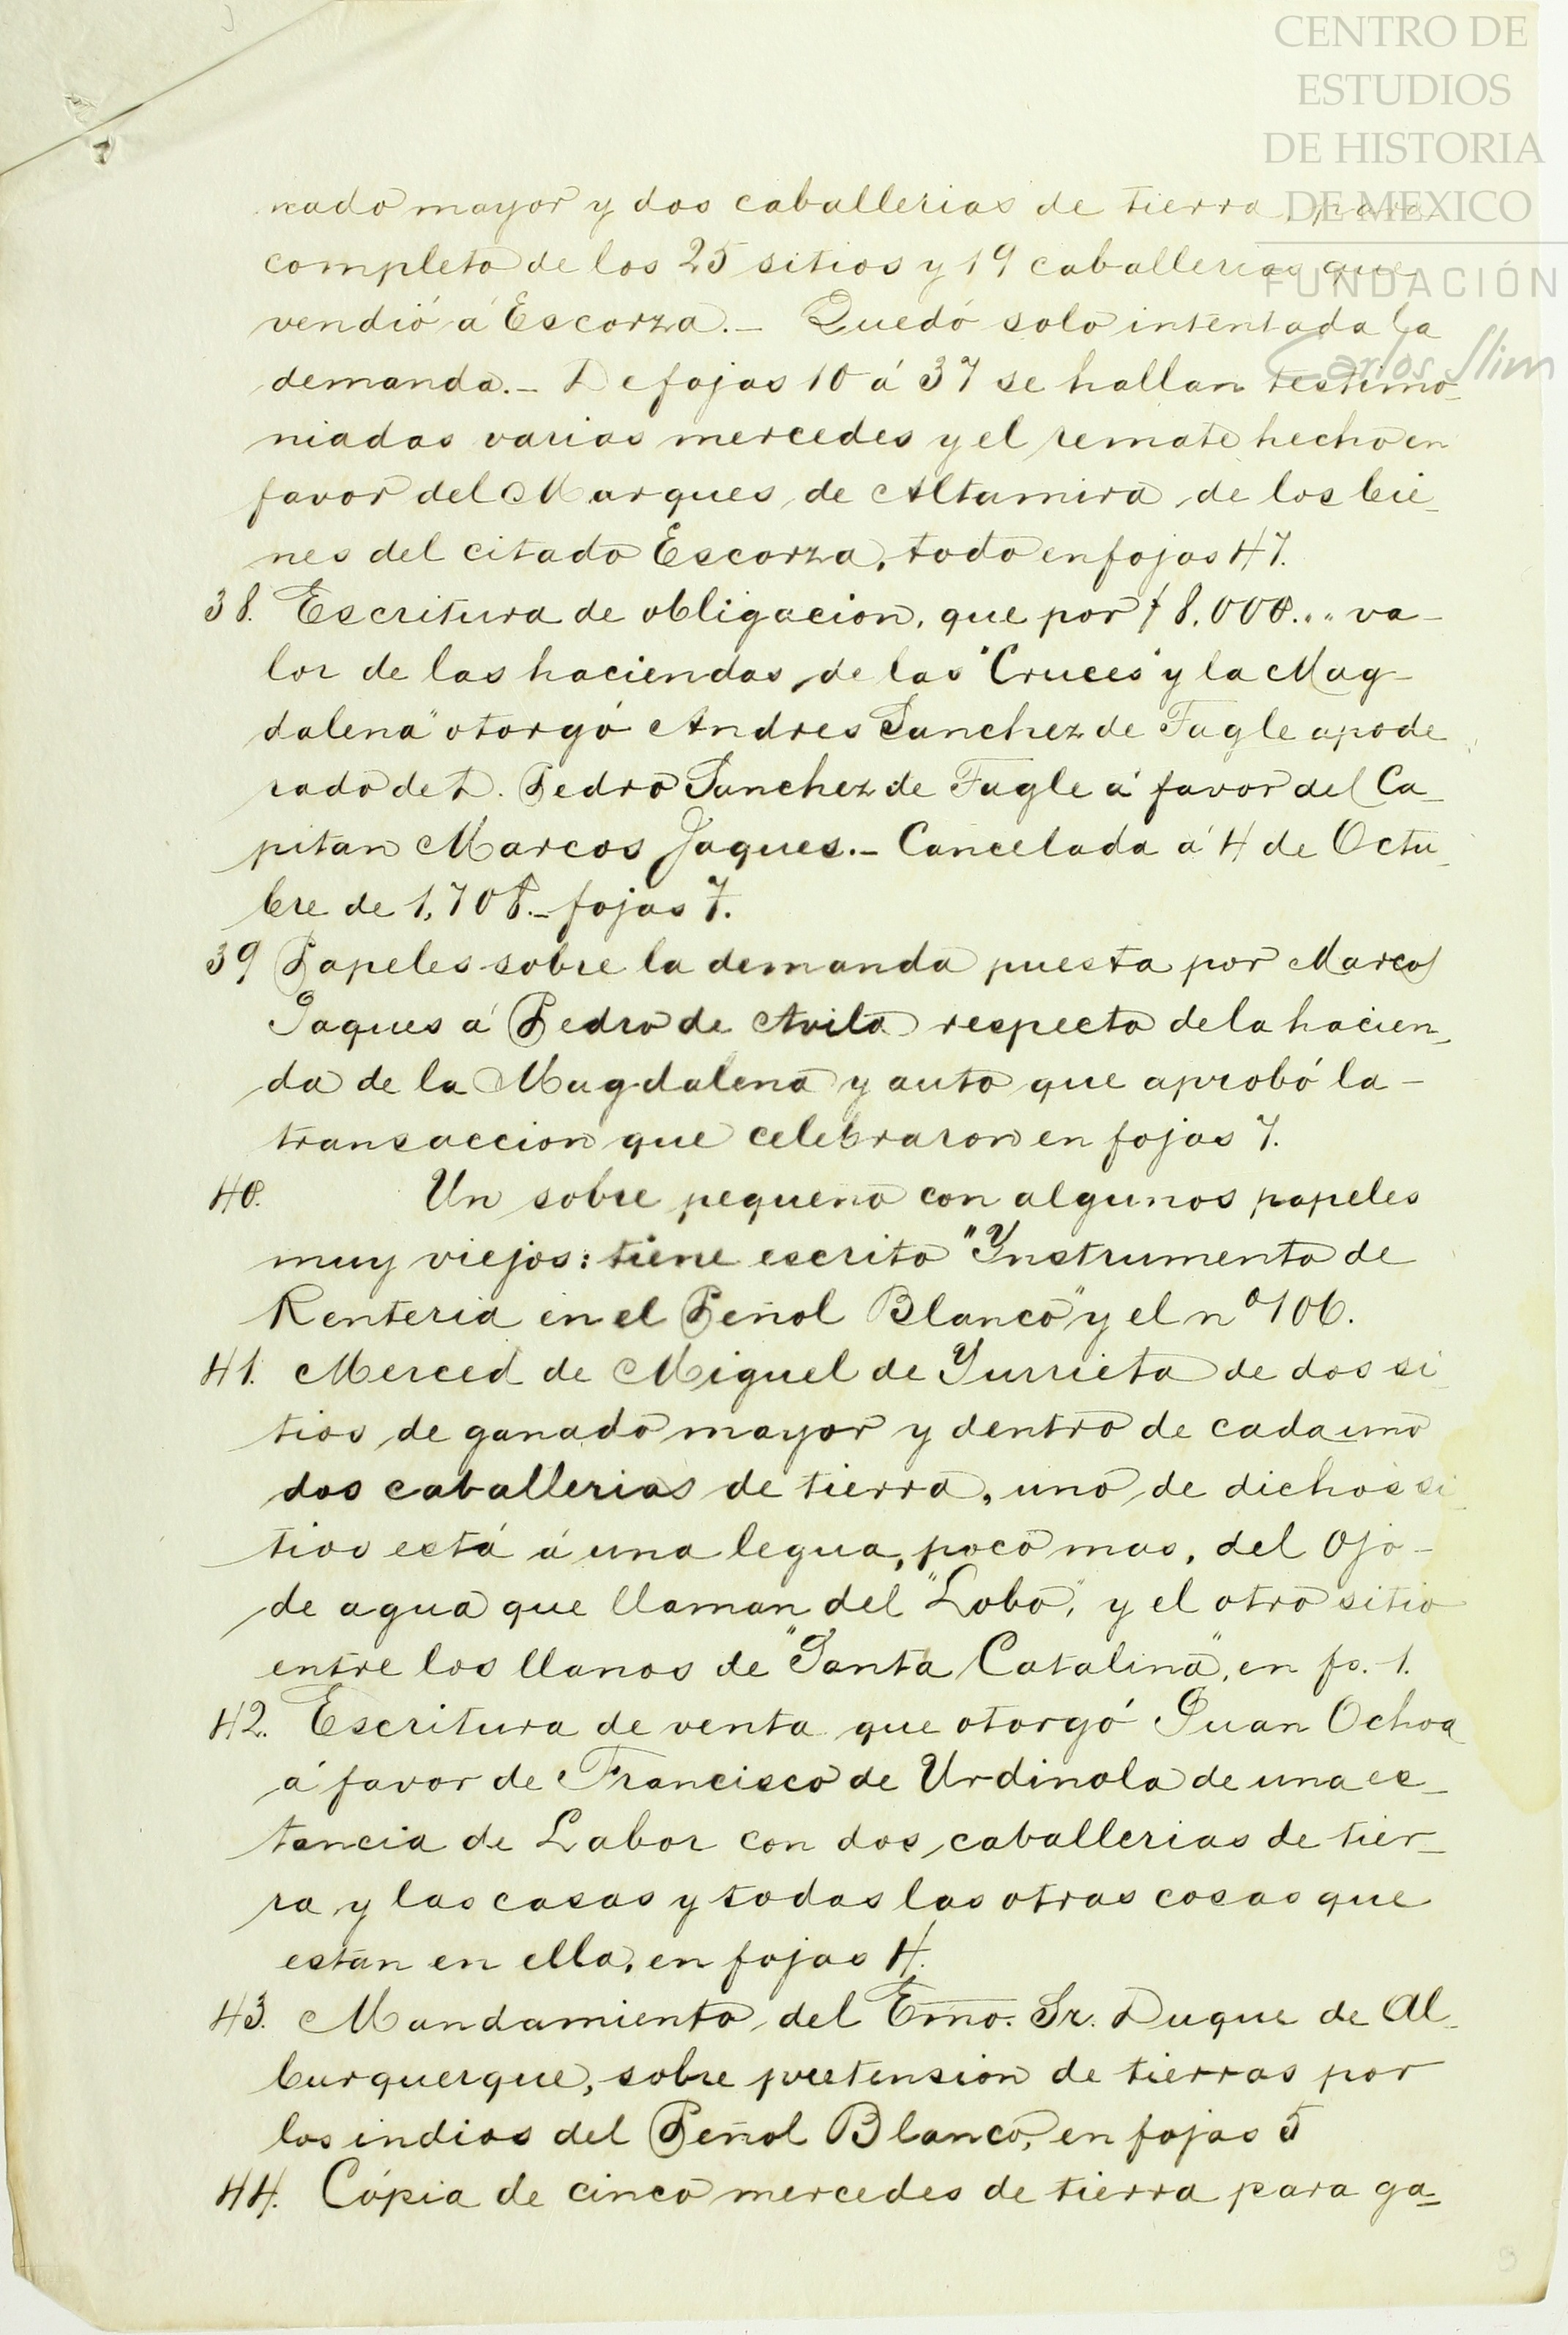 CENTRO DE
ESTUDIOS
DE HISTORIA
DE MEXICO
FUNDACIÓN
Carlos Slim
nado mayor y dos caballerias de tierra, para
completo de los 25 sitios y 19 caballerias que
vendió á Escorza.— Quedó solo intentada la
demanda.— De fojas 10 á 37 se hallan testimo-
niadas varias mercedes y el remate hecho en
favor del Marques de Altamira de los bie-
nes del citado Escorza, todo en fojas 47.
38. Escritura de obligacion, que por $ 8.000... va-
lor de las haciendas de las "Cruces" y la Mag-
dalena" otorgó Andres Sanchez de Tagle apode
rado de D. Pedro Sanchez de Tagle á favor del Ca-
pitan Marcos Jaques.— Cancelada á 4 de Octu-
bre de 1,708.— fojas 7.
39 Papeles sobre la demanda puesta por Marcos
Jaques á Pedro de Avila respecto de la hacien-
da de la Magdalena y auto que aprobó la-
transaccion que celebraron en fojas 7.
40. Un sobre pequeño con algunos papeles
muy viejos: tiene escrito "Ynstrumento de
Renteria en el Peñol Blanco" y el nº 106.
41. Merced de Miguel de Yurrieta de dos si-
tios de ganado mayor y dentro de cada uno
dos caballerias de tierra, uno de dichos si-
tios está á una legua, poco mas, del Ojo-
de agua que llaman del "Lobo", y el otro sitio
entre los llanos de "Santa Catalina", en fs. 1.
42. Escritura de venta que otorgó Juan Ochoa
á favor de Francisco de Urdinola de una es-
tancia de Labor con dos caballerias de tier-
ra y las casas y todas las otras cosas que
están en ella, en fojas 4.
43. Mandamiento del Emo. Sr. Duque de Al-
burquerque, sobre pretension de tierras por
los indios del Peñol Blanco, en fojas 5
44. Cópia de cinco mercedes de tierra para ga-